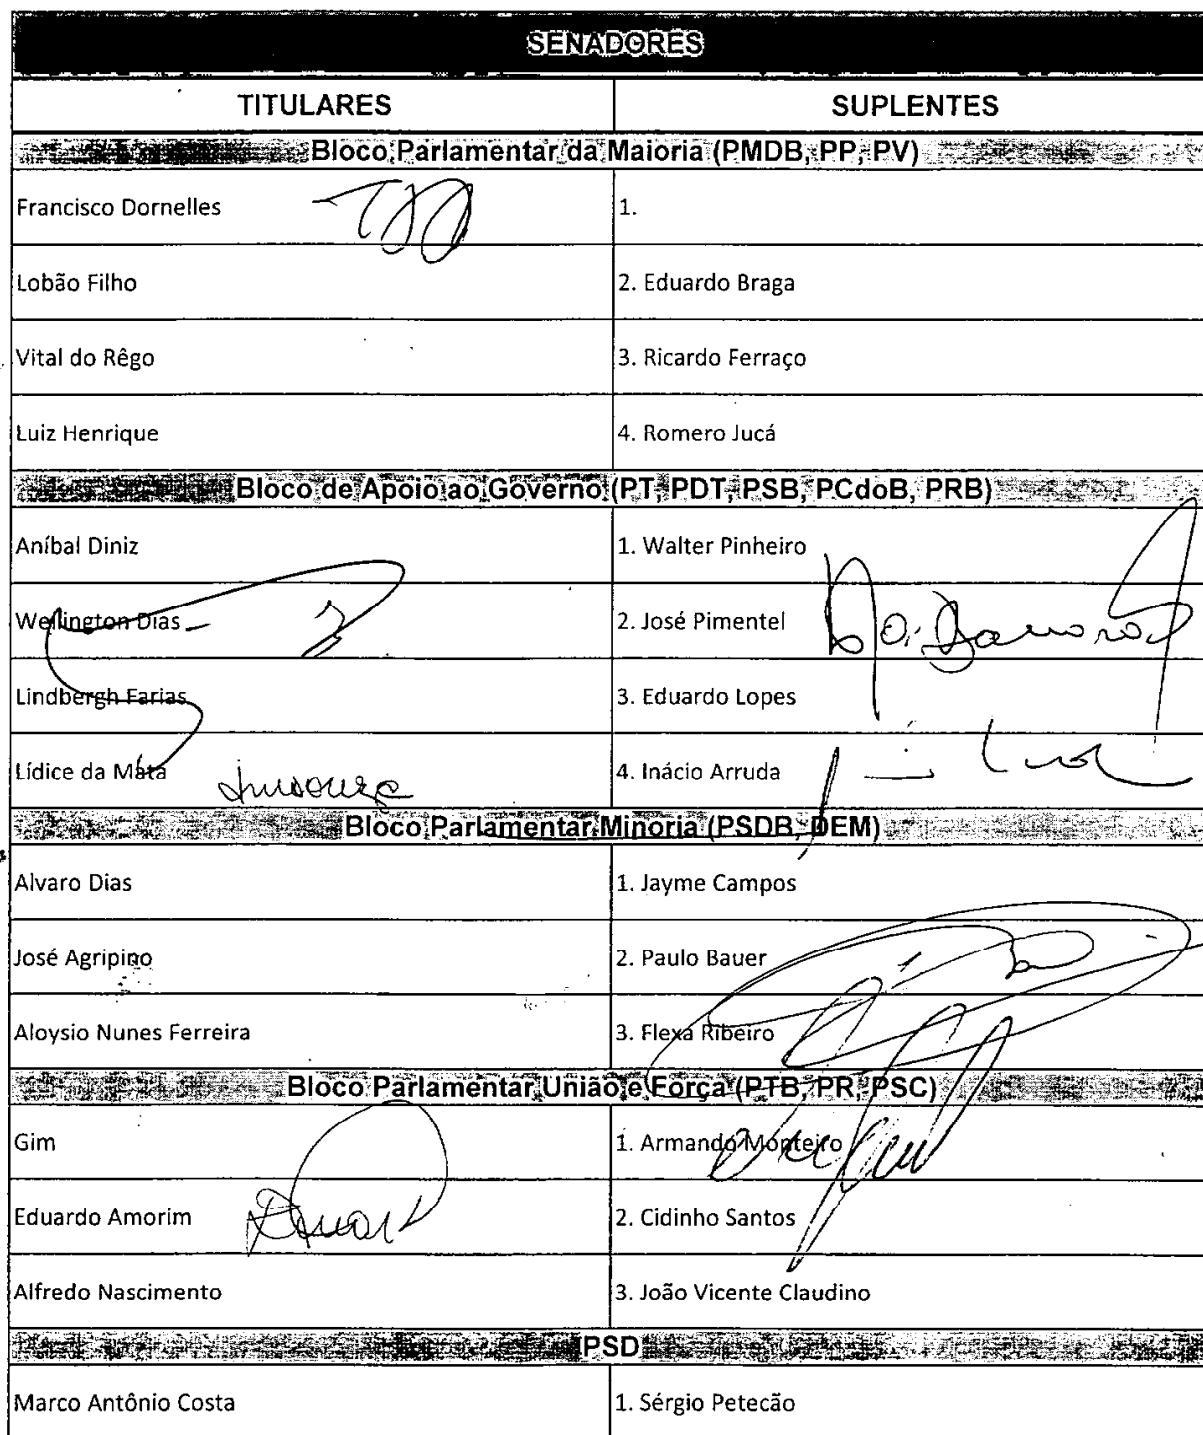 SENADORES
TITULARES SUPLENTES
Bloco Parlamentar da Maioria (PMDB, PP, PV)
Francisco Dornelles 1.
Lobão Filho 2. Eduardo Braga
Vital do Rêgo 3. Ricardo Ferraço
Luiz Henrique 4. Romero Jucá
Bloco de Apoio ao Governo (PT, PDT, PSB, PCdoB, PRB)
Aníbal Diniz 1. Walter Pinheiro
Wellington Dias 2. José Pimentel
Lindbergh Farias 3. Eduardo Lopes
Lídice da Mata 4. Inácio Arruda
Bloco Parlamentar Minoria (PSDB, DEM)
Alvaro Dias 1. Jayme Campos
José Agripino 2. Paulo Bauer
Aloysio Nunes Ferreira 3. Flexa Ribeiro
Bloco Parlamentar União e Força (PTB, PR, PSC)
Gim 1. Armando Monteiro
Eduardo Amorim 2. Cidinho Santos
Alfredo Nascimento 3. João Vicente Claudino
PSD
Marco Antônio Costa 1. Sérgio Petecão